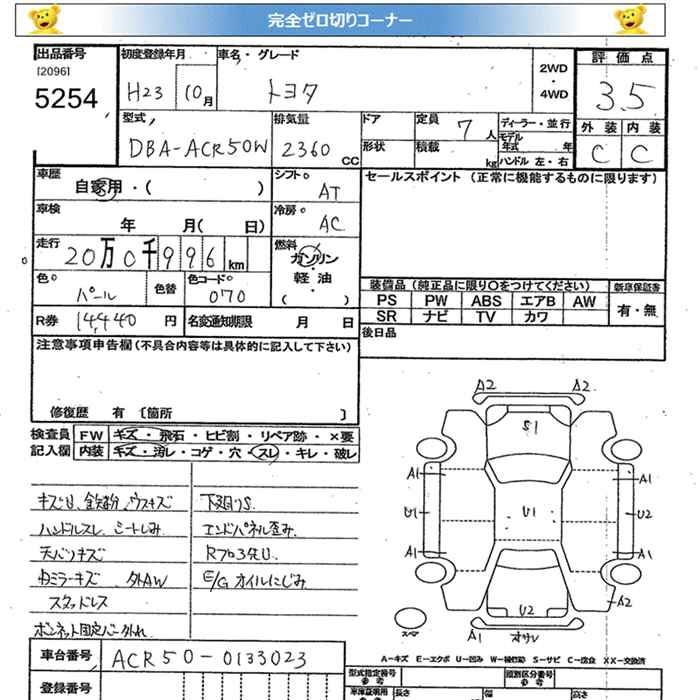 完全ゼロ切りコーナー
出品番号 初度登録年月 車名・グレード 2WD・4WD 評価点
[2096]
5254 H23 10月 トヨタ 3.5
型式 排気量 ドア 定員 7人 ディーラー・並行 外装 内装
DBA-ACR50W 2360 CC 形状 積載 kg モデル年式 年 ハンドル 左・右 C C
車歴 自家用・( ) シフト AT セールスポイント (正常に機能するものに限ります)
車検 年 月( 日) 冷房 AC
走行 20万0千996 km 燃料 ガソリン・軽油・( )
色 パール 色替 色コード 070
装備品 (純正品に限り○をつけてください) 新車保証書
PS PW ABS エアB AW 有・無
SR ナビ TV カワ
R券 14,440 円 名変通知期限 月 日 後日品
注意事項申告欄 (不具合内容等は具体的に記入して下さい)
修復歴 有 [箇所 ]
検査員 FW キズ・飛石・ヒビ割・リペア跡・×要
記入欄 内装 キズ・汚レ・コゲ・穴・スレ・キレ・破レ
キズU、鉄粉、ウスキズ 下廻りS
ハンドルスレ、シートしみ エンドパネル歪み
天バリキズ Rフロア先U
内ミラーキズ 外AW E/Gオイルにじみ
スタッドレス
ボンネット固定バー外れ
A2 A2
S1
A1 A1
U1 U1 U2
A1 A1
A2
U2
スマ A1 オサレ
A-キズ E-エクボ U-凹み W-補修跡 S-サビ C-腐食 XX-交換済
車台番号 ACR50-0133023
型式指定番号 参考 類別区分番号 参考
登録番号 長さ 幅 高さ